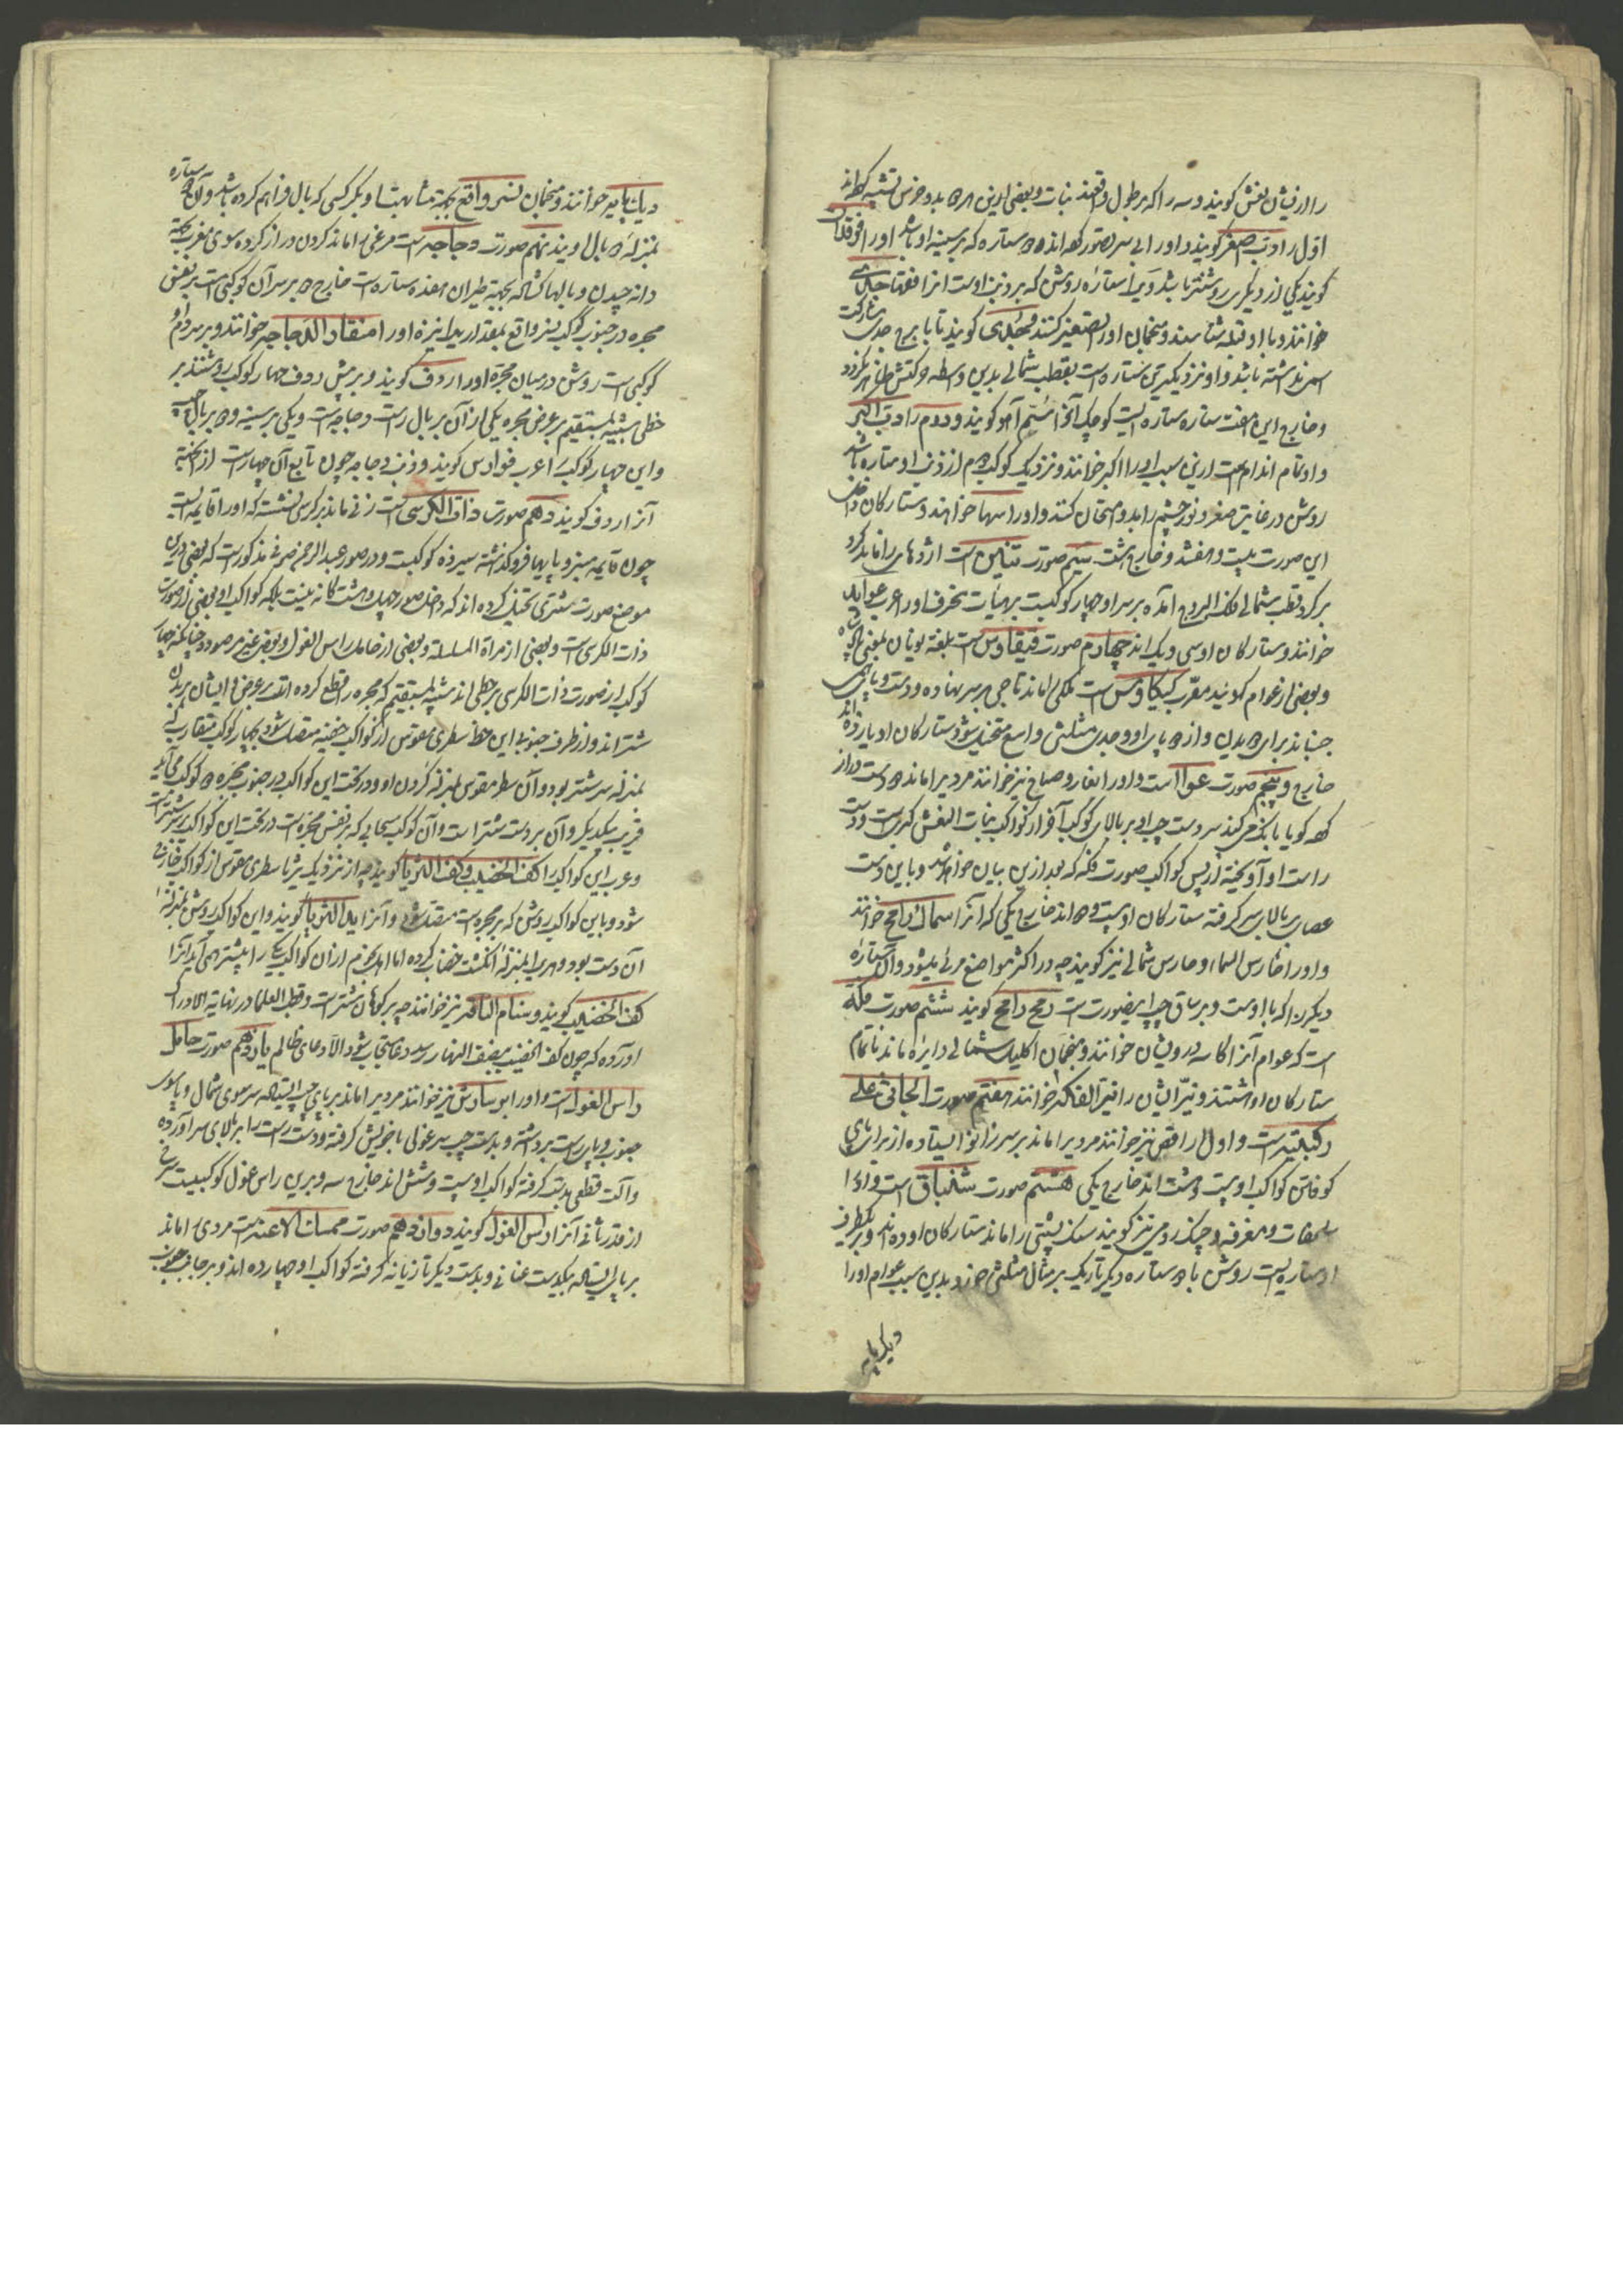 را ازیشان نعش کویند و سه را که بر طول واقعند بنات و بعضی ازین هر دو بدو خرس تشبیه کرده‌اند
اول را دب اصغر کویند و اورا بی سر تصور کرده اند دو ستاره که بر سینه او باشد اورا فرقدان
کویند یکی از دیکری روشنتر باشد و یک ستاره روشن که بر ذنب اوست انرا فقها جدی
خوانند و با او قبله شناسند و منجمان اورا تصغیر کنند و جُدَی کویند تا با برج جدی مشارکت
اسمی نداشته باشد و او نزدیکترین ستاره است بقطب شمالی بدین واسطه حرکتش ظاهر نکردد
و خارج این هفت ستاره ستاره ایست کوچک آنرا آهو کویند و دوم را دب اکبر
و او تمام اندام است ازین سبب اورا اکبر خوانند و نزدیک کوکب دوم از ذنب او ستاره باشد
روشن در غایت صغر و نور چشم را بدو امتحان کنند و اورا سها خوانند و ستارکان داخل
این صورت بیست و هفتند و خارج هشت سیم صورت تنین است اژدهای را ماند کرد
بر کرد قطب شمالی فلک البروج آمده بر سر او چهار کوکبست بر هیأت منحرف اورا عرب عواید
خوانند و ستارکان او سی و یک اند چهارم صورت قیقاوس است بلغت یونان
و بعضی از عوام کویند معرب کیکاوس است ملکی را ماند تاجی بر سر نهاده و دست و پای
جنباند برای و از دو پای او و جدی مثلثی واسع متخیل شود ستارکان او یازده اند
خارج دو پنجم صورت عوا است و اورا نیز خوانند مردیرا ماند دو دست دراز
کرده کویا بانک می کند سر دست چپ او بر بالای کوکب آخر از کواکب بنات النعش کبری است و دست
راست او آویخته از پس کواکب صورت فکه که بعد ازین بیان خواهد شد و باین دست
عصای بالای سر کرفته ستارکان او بیست و دو اند خارج یکی که آنرا سماک رامح خوانند
و اورا حارس السماء و حارس شمالی نیز کویند چه در اکثر مواضع مرئی میشود و آن ستاره
دیکر را که با اوست و بر ساق چپ این صورتست رمح رامح کویند ششم صورت فکه
است که عوام آنرا کاسه درویشان خوانند و منجمان اکلیل شمالی دایره را ماند ناتمام
ستارکان او هشتند و نیّر ایشان را نیّر الفکه خوانند هفتم صورت الجاثی علی
رکبتیه است و اول راقص نیز خوانند مردیرا ماند بر سر زانو ایستاده از برای پای
کوفتن کواکب او بیست و هشت اند خارج یکی هشتم صورت شلیاق است و اورا
سلحفات و معزفه و چنک رومی نیز کویند سنک پشتی را ماند ستارکان او ده اند و بر یکطرف
او ستاره ایست روشن با دو ستاره دیکر تاریک بر مثال مثلثی خرد و بدین سبب عوام اورا
دیک پایه
دیک پایه خوانند و منجمان نسر واقع بجهة مشابهت او بکرکسی که بال فراهم کرده باشد و آن دو ستاره
بمنزله دو بال اویند نهم صورت دجاجه است مرغی را ماند کردن دراز کرده سوی مغرب بجهة
دانه چیدن و بالها کشاده بجهة طیران هفده ستاره است خارج دو بر سر آن کوکبی است بر بعض
مجره در جنوب کوکب نسر واقع بمقدار نیزه اورا منقار الدجاجه خوانند و بر سر دم او
کوکبی است روشن در میان مجره اورا ردف کویند و بر پیش ردف چهار کوکب روشنند بر
خطی شبیه بمستقیم بر عرض مجره یکی از آن بر بال راست دجاجه است و یکی بر سینه و دو بر بال چپ
و این چهار کوکب را عرب فوارس کویند و ذنب دجاجه چون تابع آن چهار است از اینجهة
آنرا ردف کویند دهم صورت ذات الکرسی است زنی را ماند بر کرسی نشسته که اورا قایمه ایست
چون قایمه منبر و پایها فروکذاشته سیزده کوکبست و در صور عبدالرحمن صوفی مذکورست که بعضی درین
موضع صورت شتری تخیل کرده اند که داخل صور چهل و هشت کانه نیست بلکه کواکب او بعضی از صورت
ذات الکرسی است و بعضی از مراة المسلسله و بعضی از حامل راس الغول و بعضی غیر مرصود چنانکه چهار
کوکب از صورت ذات الکرسی بر خطی اند شبیه بمستقیم که مجره را قطع کرده اند بر عرض و ایشان بر بدن
شتر اند و از طرف جنوب این خط سطری مقوس از کواکب خفیه متصل شود بچهار کوکب متقارب که
بمنزله سر شتر بود و آن سطر مقوس بمنزله کردن او و در تحت این کواکب در جنوب مجره دو کوکب می‌آید
قریب بیکدیکر و آن بر دست شتر است و آن کوکب سحابی که بر نفس مجره است در تحت این کواکب بر
و عرب این کواکب را کف الخضیب و کف الثریا کویند چه از نزدیک ثریا سطری مقوس از کواکب خارج
شود و باین کواکب روشن که بر مجره است متصل شود و آنرا ید الثریا کویند و این کواکب روشن بمنزله
آن دست بود و هر یک بمنزله انکشت خضاب کرده اما اهل نجوم از آن کواکب یکی را پیشتر همی آید آنرا
کف الخضیب کویند و سنام الناقه نیز خوانند چه بر کوهان شتر است و قطب العلما در نهایة الادراک
آورده که چون کف الخضیب بنصف النهار رسد دعا مستجاب شود الا دعای ظالم یازدهم صورت حامل
راس الغول است و اورا برساوش نیز خوانند مردیرا ماند بر پای چپ ایستاده سر سوی شمال و پا سوی
جنوب و پای راست برداشته و بدست چپ سر غولی با خویش کرفته و دست راست را بر بالای سر آورده
و آلت قطعی بدست کرفته کواکب او بیست و شش اند خارج سه و برین راس غول کوکبیست سرخ
از قدر ثانی آنرا راس الغول کویند دوازدهم صورت ممسک الاعنه است مردی را ماند
بر پای ایستاده بیکدست عنانی و بدست دیکر تازیانه کرفته کواکب او چهارده اند و بر جانب جنوب